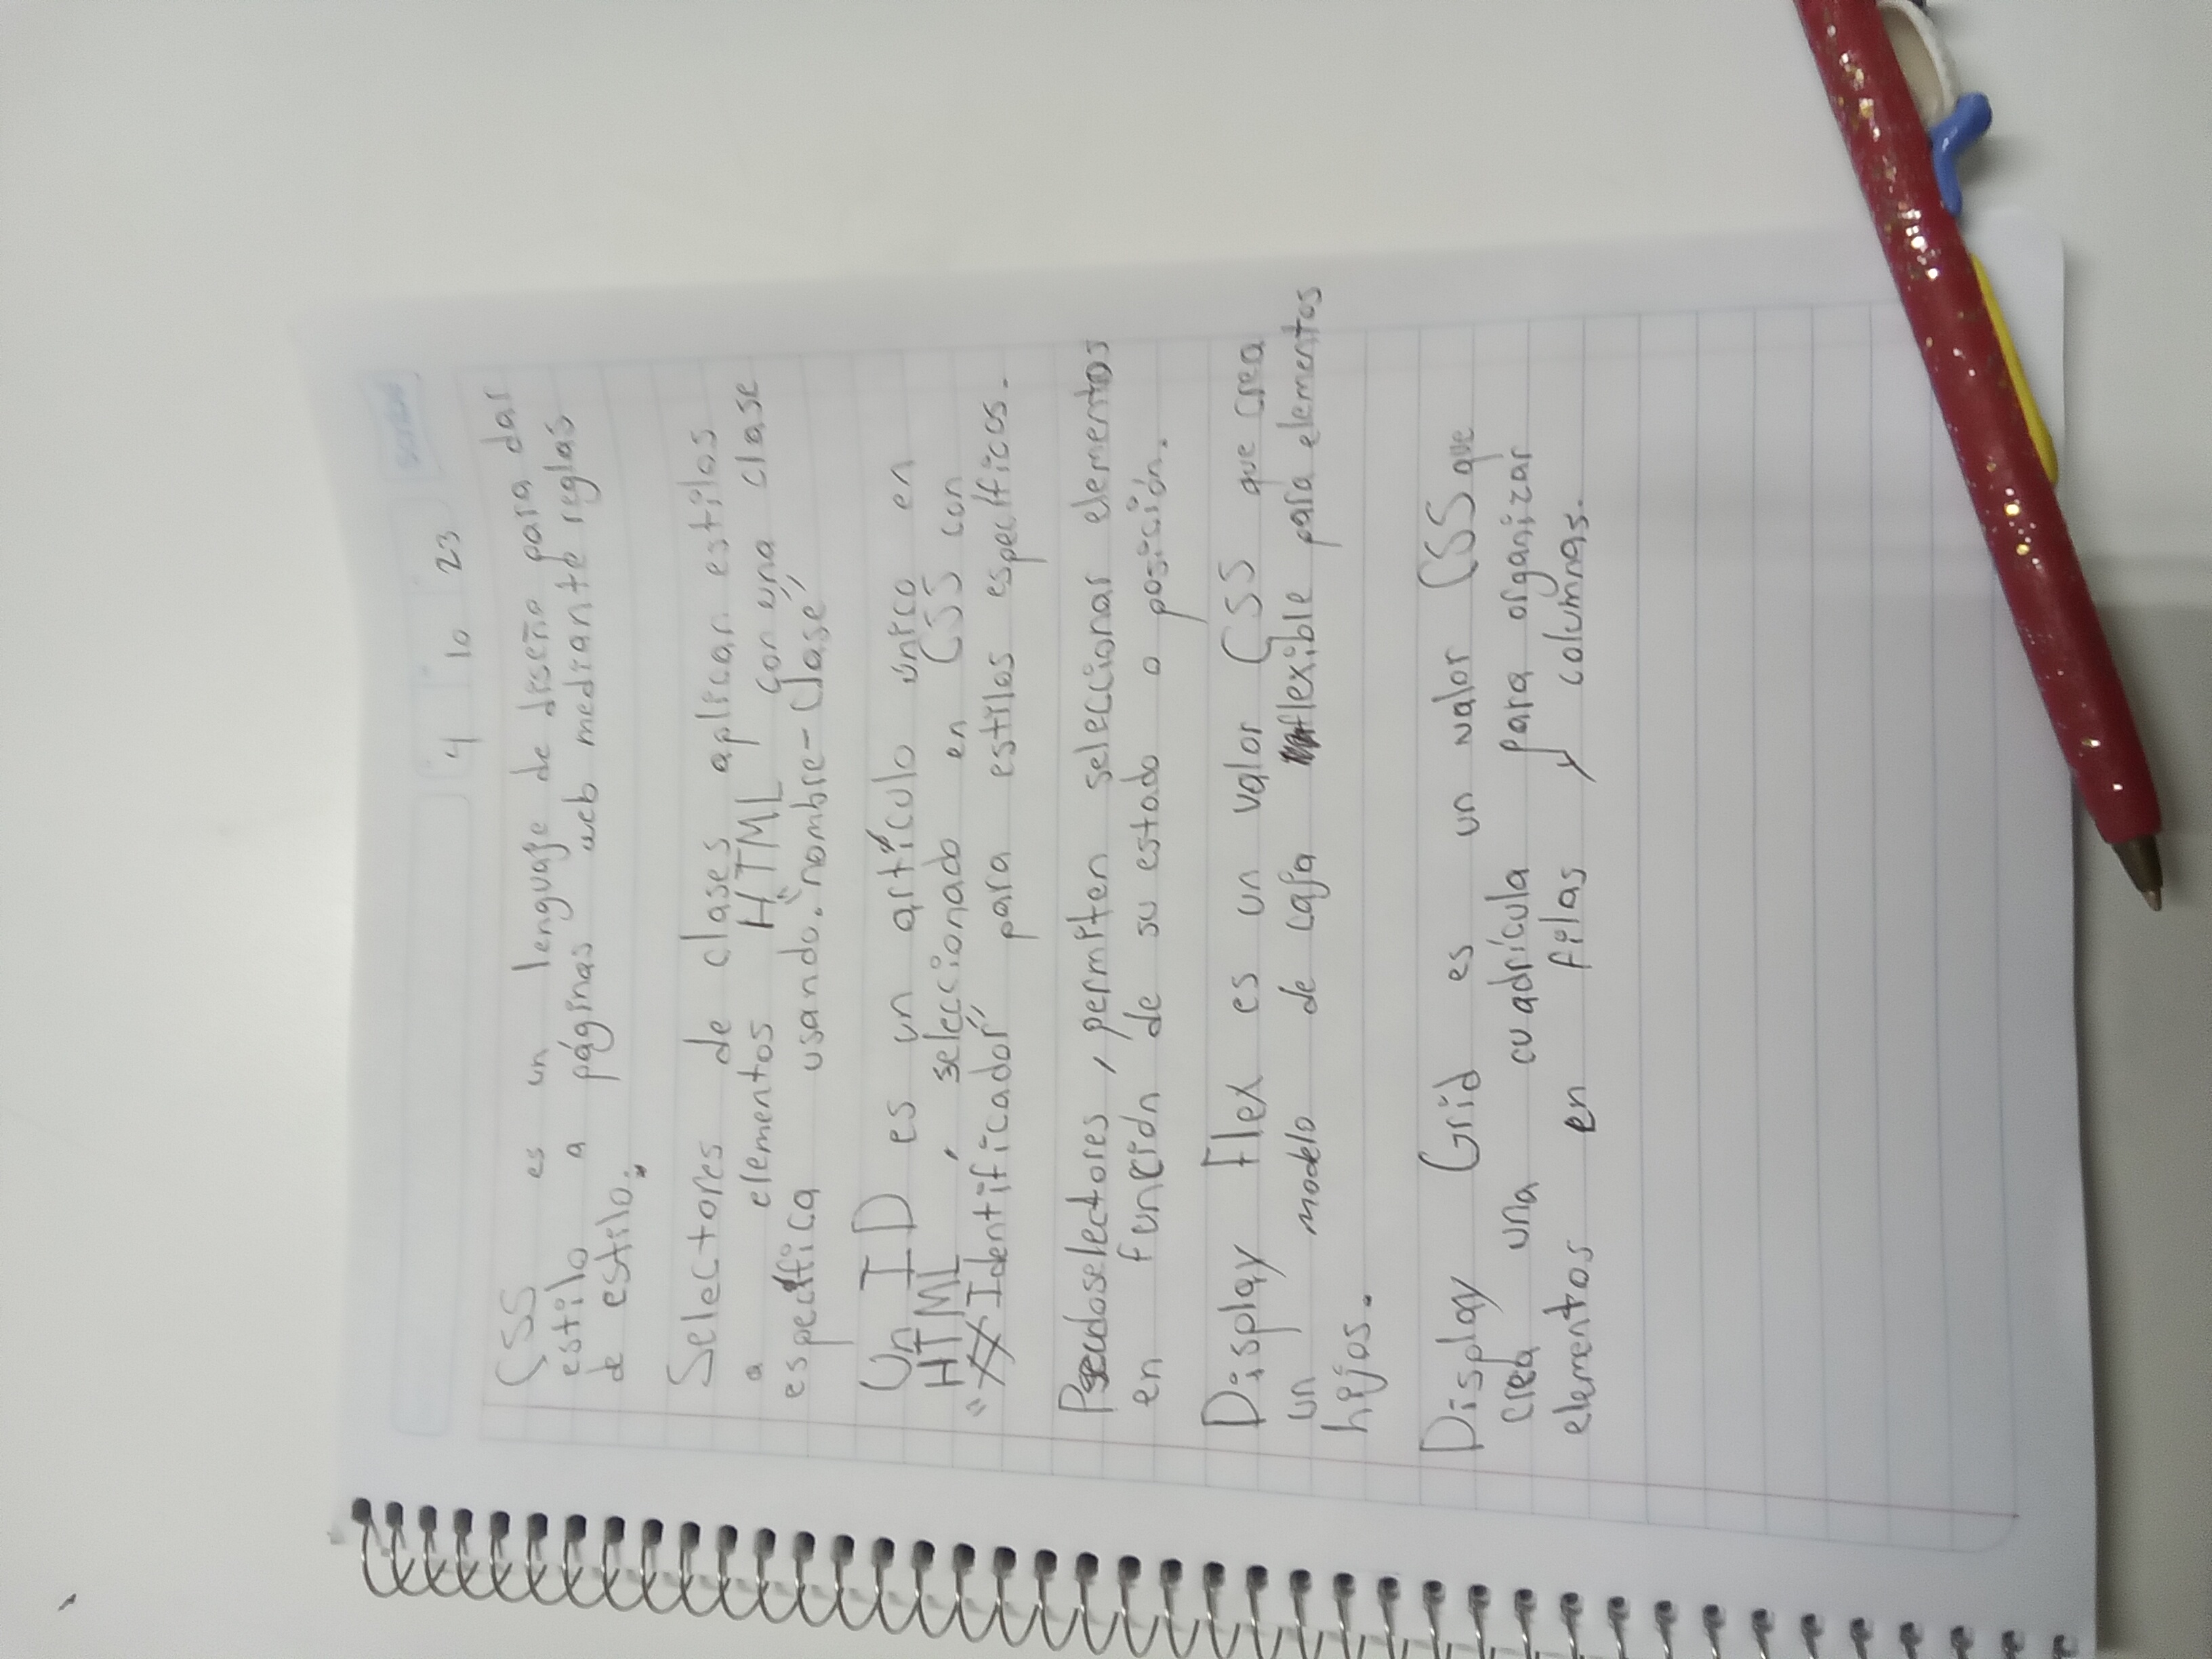 4 10 23
CSS es un lenguaje de diseño para dar
estilo a páginas web mediante reglas
de estilo.
Selectores de clases aplican estilos
a elementos HTML con una clase
específica usando. "nombre-clase"
Un ID es un artículo único en
HTML, seleccionado en CSS con
"# Identificador" para estilos específicos.
Pseudoselectores, permiten seleccionar elementos
en función de su estado o posición.
Display Flex es un valor CSS que crea
un modelo de caja flexible para elementos
hijos.
Display Grid es un valor CSS que
crea una cuadrícula para organizar
elementos en filas y columnas.